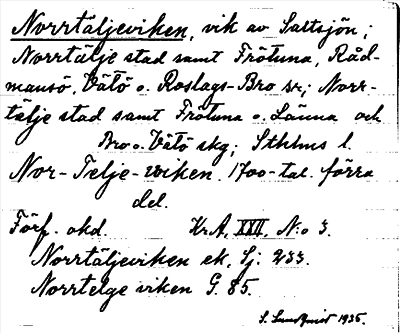 Norrtäljeviken, vik av Saltsjön;
Norrtälje stad samt Frötuna, Råd-
mansö, Vätö o. Roslags-Bro sr; Norr-
tälje stad samt Frötuna o. Länna och
Bro o. Vätö skg; Sthlms l.
Nor-Telje-wiken. 1700-tal. förra
del.
Förf. okd. Kr.A, XXII, N:o 3.
Norrtäljeviken ek, Sj. 233.
Norrtelge viken G. 85.
S. Lundquist 1935.